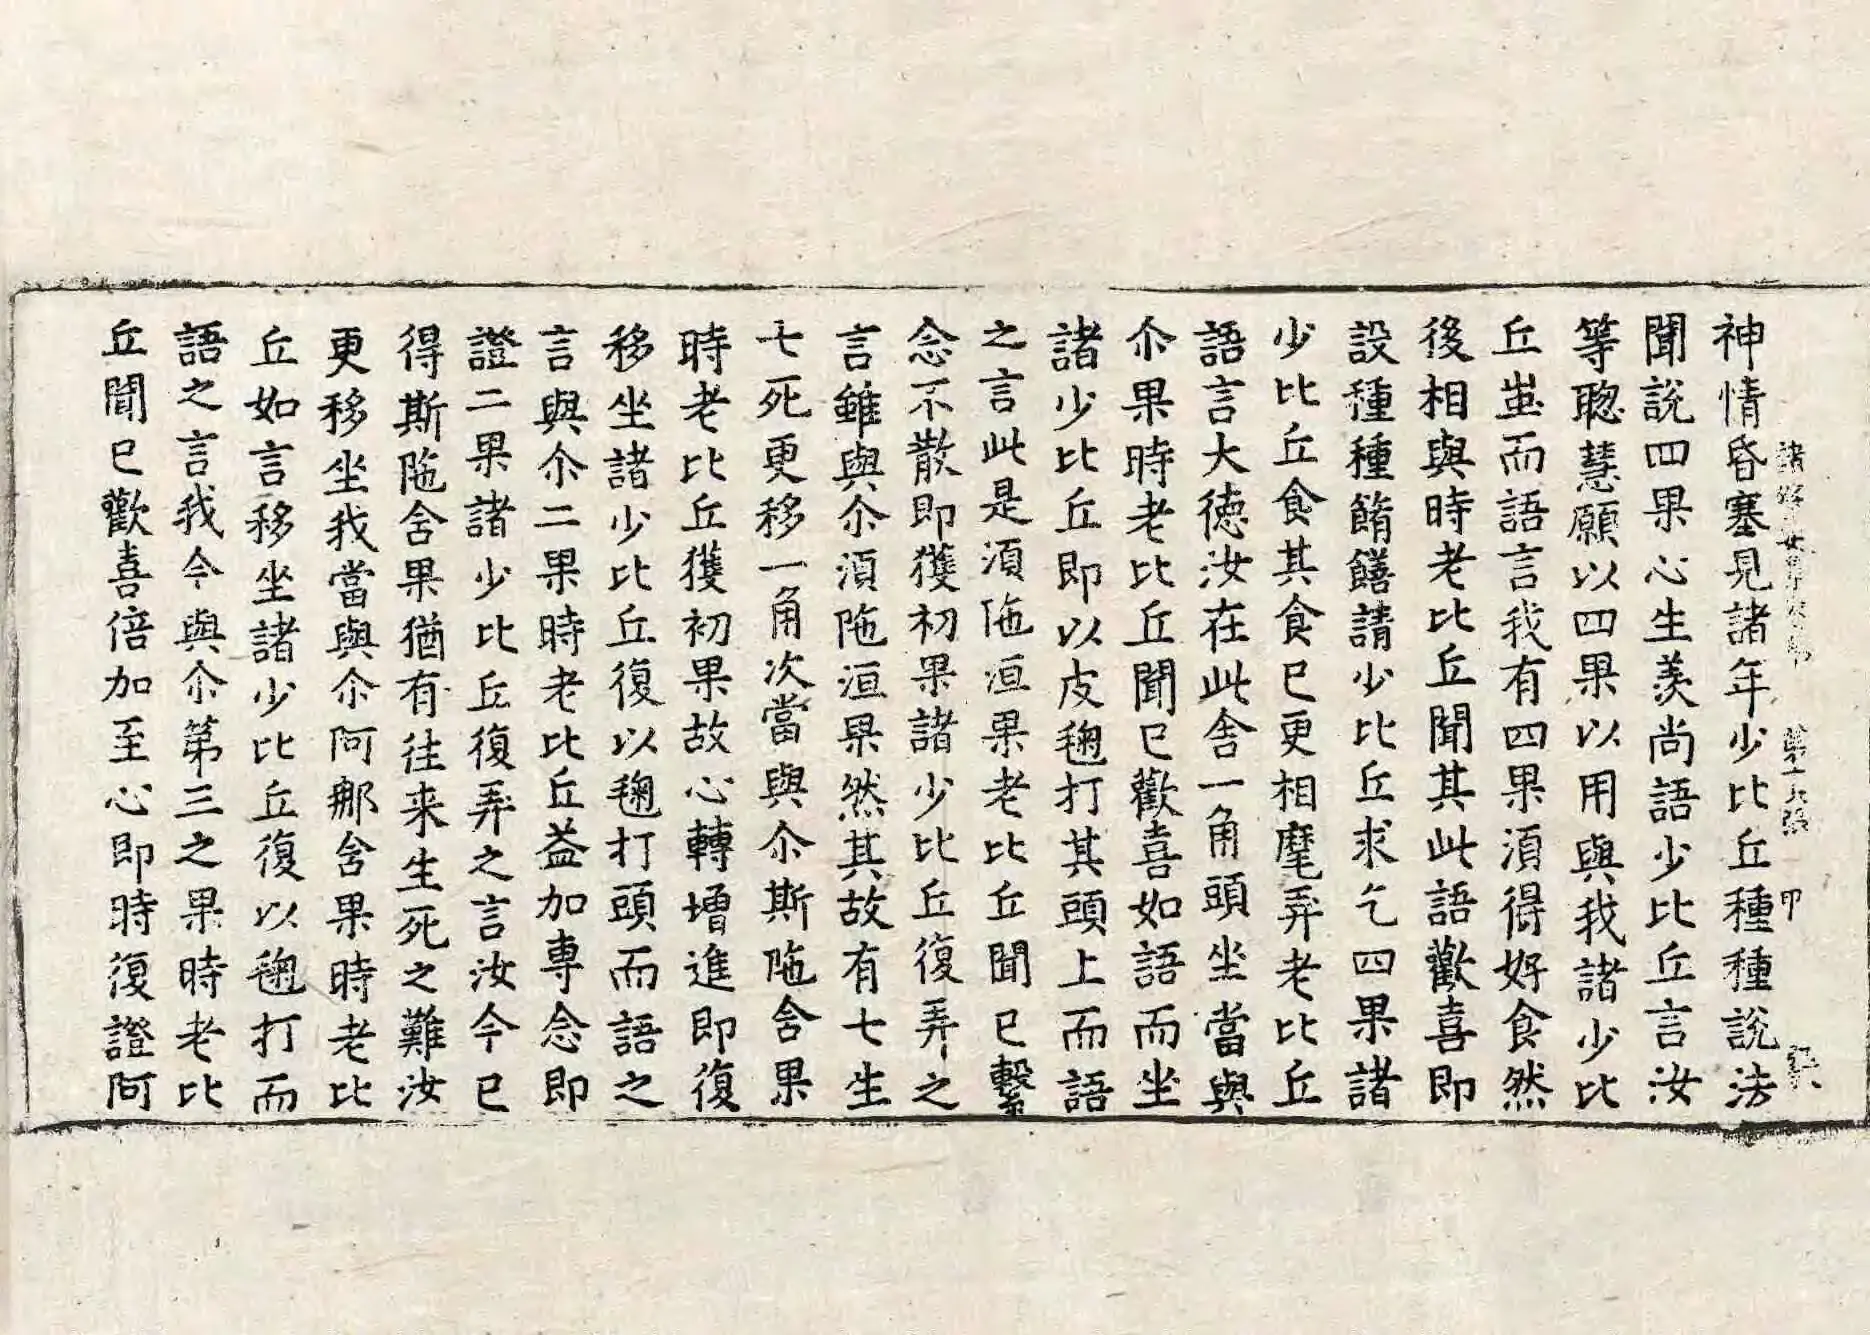 諸 第十 張 甲
神情昏塞見諸年少比丘種種說法
聞說四果心生羨尚語少比丘言汝
等聦慧願以四果以用與我諸少比
丘蚩而語言我有四果湏得好食然
後相與時老比丘聞其此語歡喜即
設種種餚饍請少比丘求乞四果諸
少比丘食其食已更相麾弄老比丘
語言大德汝在此舍一角頭坐當與
尒果時老比丘聞已歡喜如語而坐
諸少比丘即以皮毱打其頭上而語
之言此是湏陁洹果老比丘聞已繫
念不散即獲初果諸少比丘復弄之
言雖與尒湏陁洹果然其故有七生
七死更移一角次當與尒斯陁含果
時老比丘獲初果故心轉增進即復
移坐諸少比丘復以毱打頭而語之
言與尒二果時老比丘益加專念即
證二果諸少比丘復弄之言汝今已
得斯陁含果猶有往来生死之難汝
更移坐我當與尒阿那含果時老比
丘如言移坐諸少比丘復以毱打而
語之言我今與尒第三之果時老比
丘聞已歡喜倍加至心即時復證阿